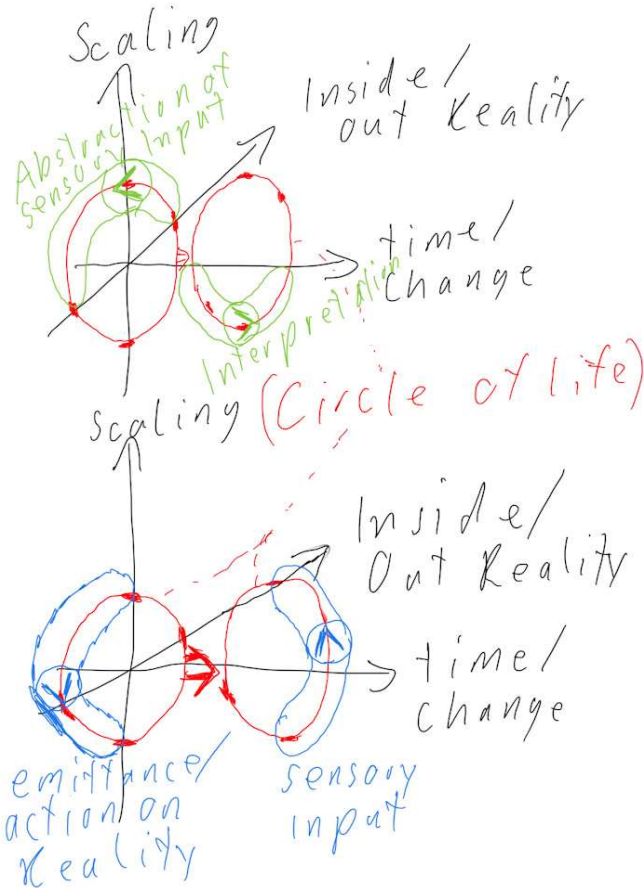 Scaling
Inside/
out Reality
Abstraction of
sensory Input
time/
change
Interpretation
Scaling
(Circle of life)
Inside/
Out Reality
time/
change
emittance/
action on
Reality
sensory
input